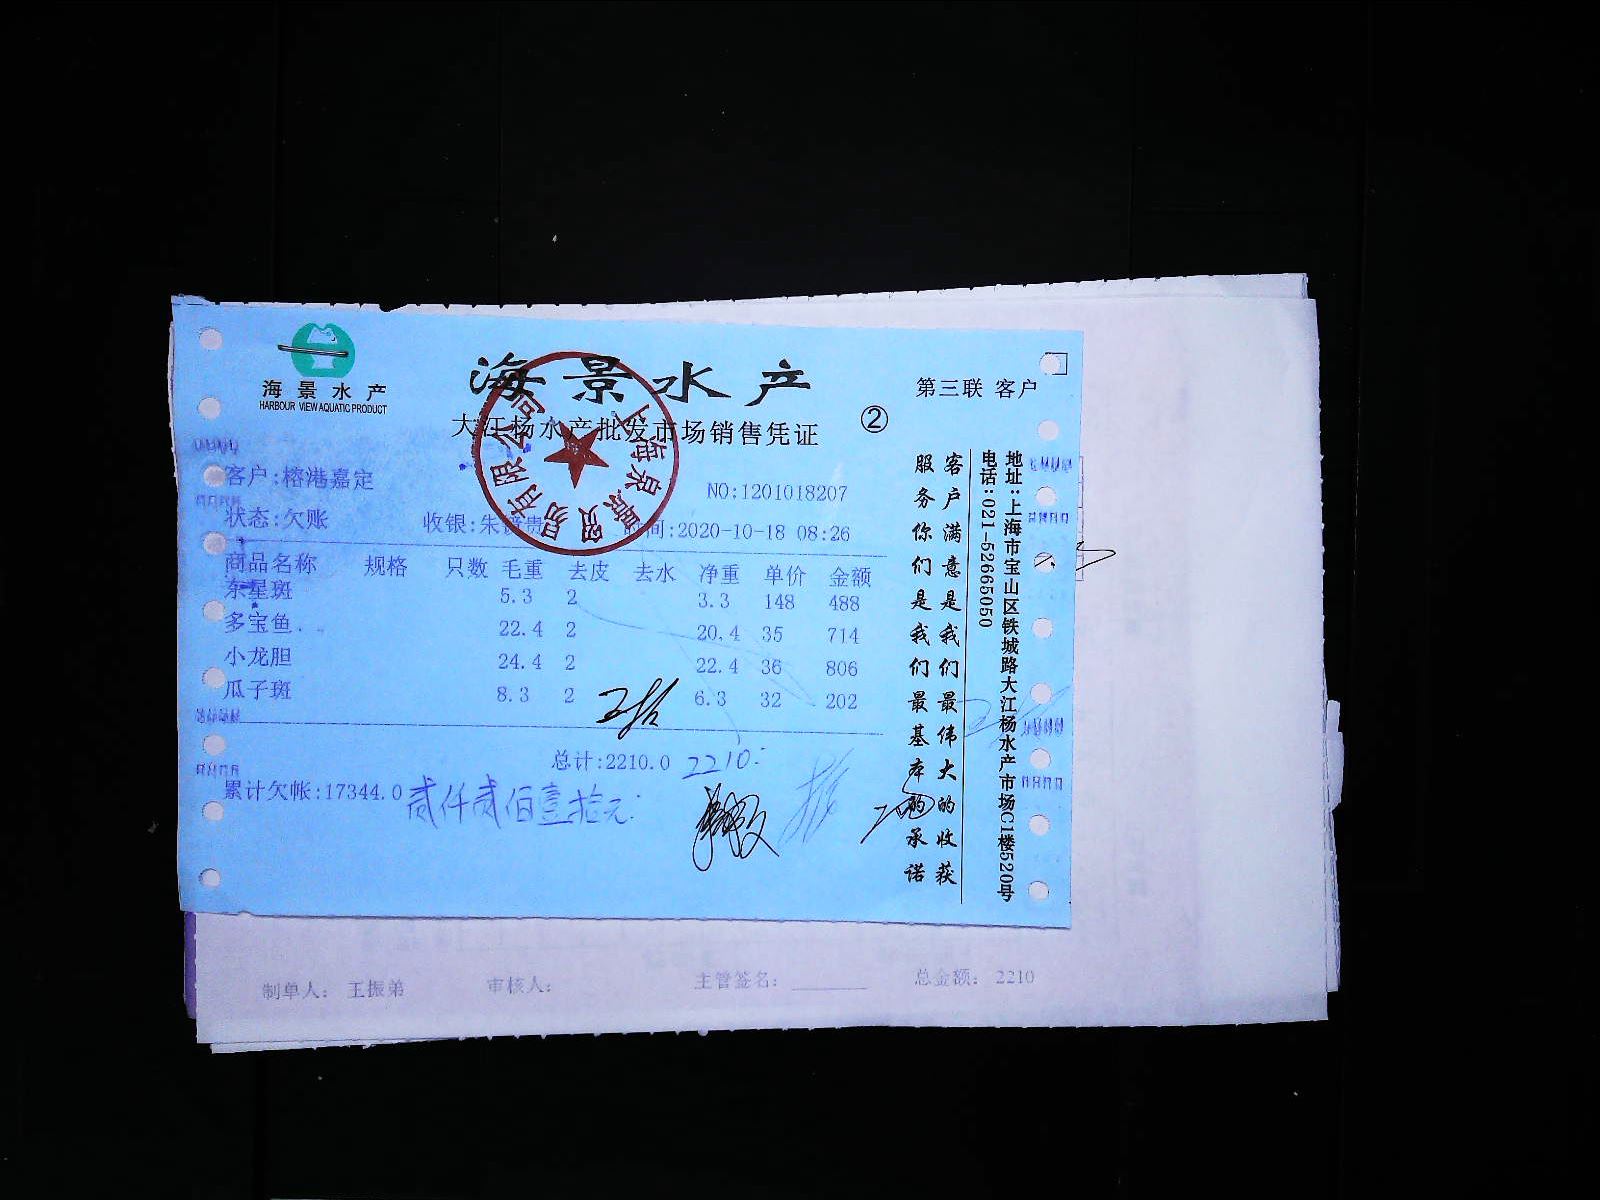 海景水产
HARBOUR VIEW AQUATIC PRODUCT
海景水产
大江杨水产批发市场销售凭证
②
第三联 客户
客户:榕港嘉定
NO:1201018207
状态:欠账 收银:朱 贵 时间:2020-10-18 08:26
商品名称 规格 只数 毛重 去皮 去水 净重 单价 金额
东星斑 5.3 2 3.3 148 488
多宝鱼 22.4 2 20.4 35 714
小龙胆 24.4 2 22.4 36 806
瓜子斑 8.3 2 6.3 32 202
总计:2210.0 2210.
累计欠帐:17344.0 贰仟贰佰壹拾元
客户满意是我们最伟大的收获
服务你们是我们最基本的承诺
地址:上海市宝山区铁城路大江杨水产市场C1楼520号
电话:021-52665050
上海泉景贸易有限公司
制单人: 王振弟 审核人: 主管签名: 总金额: 2210